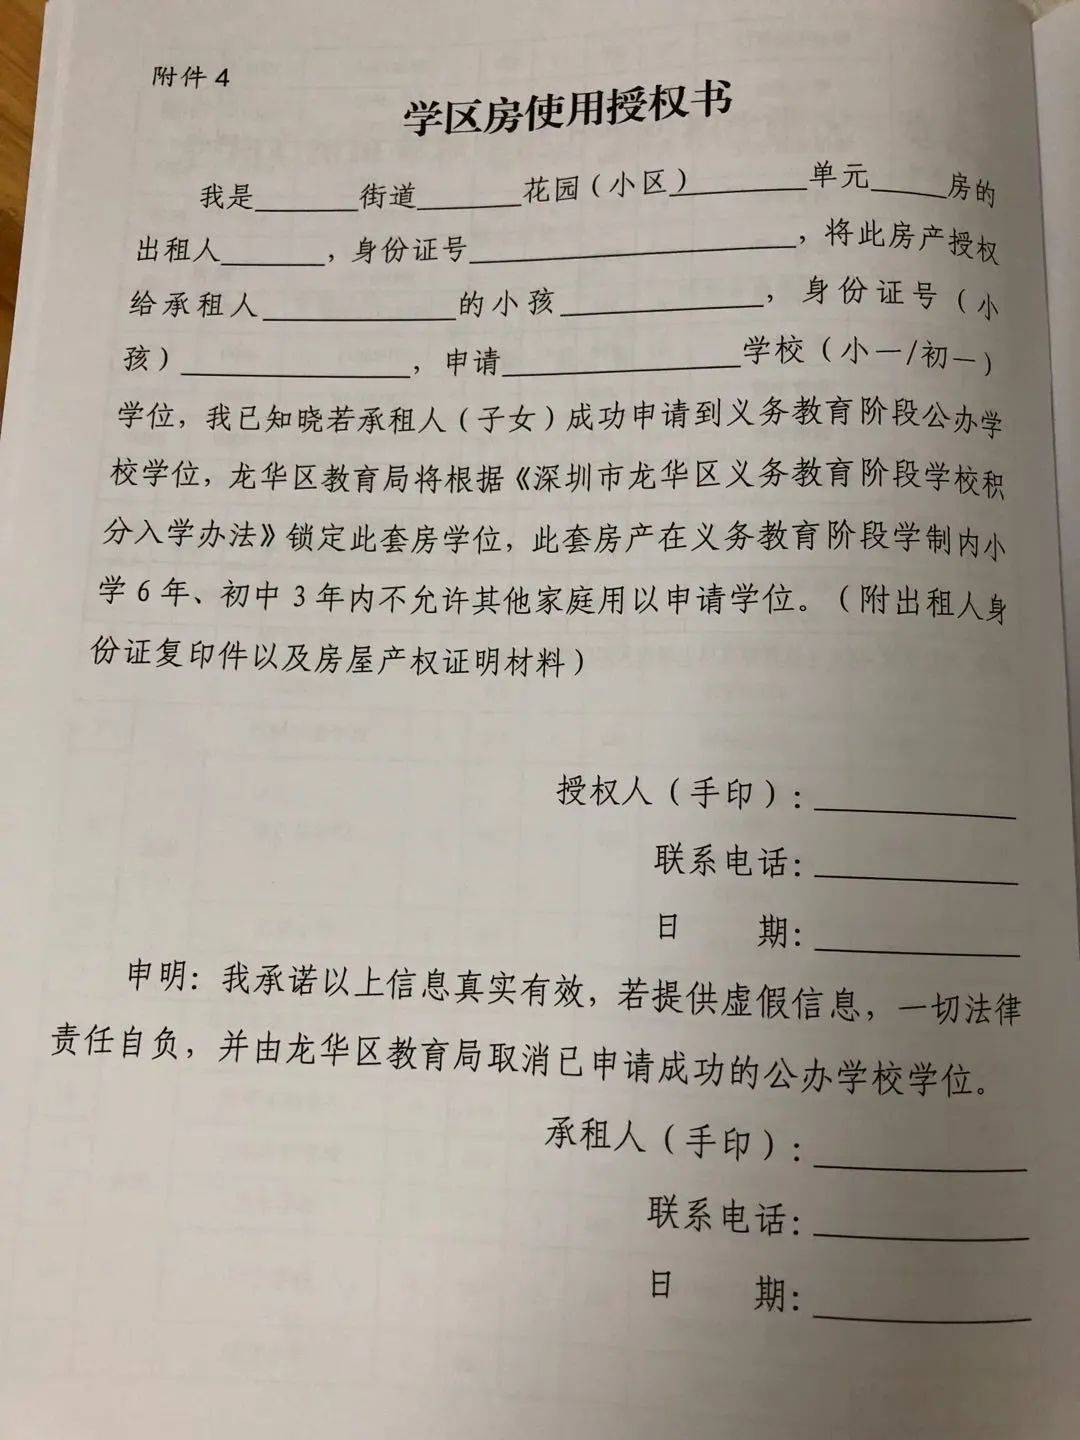 附件 4
学区房使用授权书
我是______街道______花园（小区）______单元______房的
出租人______，身份证号______，将此房产授权
给承租人______的小孩______，身份证号（小
孩）______，申请______学校（小一/初一）
学位，我已知晓若承租人（子女）成功申请到义务教育阶段公办学
校学位，龙华区教育局将根据《深圳市龙华区义务教育阶段学校积
分入学办法》锁定此套房学位，此套房产在义务教育阶段学制内小
学 6 年、初中 3 年内不允许其他家庭用以申请学位。（附出租人身
份证复印件以及房屋产权证明材料）
授权人（手印）：______
联系电话：______
日　　期：______
申明：我承诺以上信息真实有效，若提供虚假信息，一切法律
责任自负，并由龙华区教育局取消已申请成功的公办学校学位。
承租人（手印）：______
联系电话：______
日　　期：______